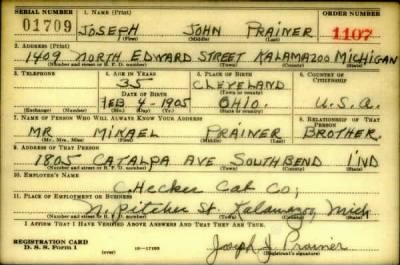 SERIAL NUMBER 1. NAME (Print) ORDER NUMBER
01709 JOSEPH JOHN PRAINER 1107
(First) (Middle) (Last)
2. ADDRESS (Print)
1409 NORTH EDWARD STREET KALAMAZOO MICHIGAN
(Number and street or R. F. D. number) (Town) (County) (State)
3. TELEPHONE 4. AGE IN YEARS 5. PLACE OF BIRTH 6. COUNTRY OF CITIZENSHIP
35 CLEVELAND
DATE OF BIRTH (Town or county)
FEB 4-1905 OHIO. U.S.A.
(Exchange) (Number) (Mo.) (Day) (Yr.) (State or country)
7. NAME OF PERSON WHO WILL ALWAYS KNOW YOUR ADDRESS 8. RELATIONSHIP OF THAT PERSON
MR MIKAEL PRAINER BROTHER.
(Mr., Mrs., Miss) (First) (Middle) (Last)
9. ADDRESS OF THAT PERSON
1805 CATALPA AVE SOUTHBEND IND
(Number and street or R. F. D. number) (Town) (County) (State)
10. EMPLOYER'S NAME
CHecker Cab Co;
11. PLACE OF EMPLOYMENT OR BUSINESS
N. Pitcher St. Kalamazoo Mich
(Number and street or R. F. D. number) (Town) (County) (State)
I AFFIRM THAT I HAVE VERIFIED ABOVE ANSWERS AND THAT THEY ARE TRUE.
REGISTRATION CARD
D. S. S. Form 1 Joseph J. Prainer
(Registrant's signature)